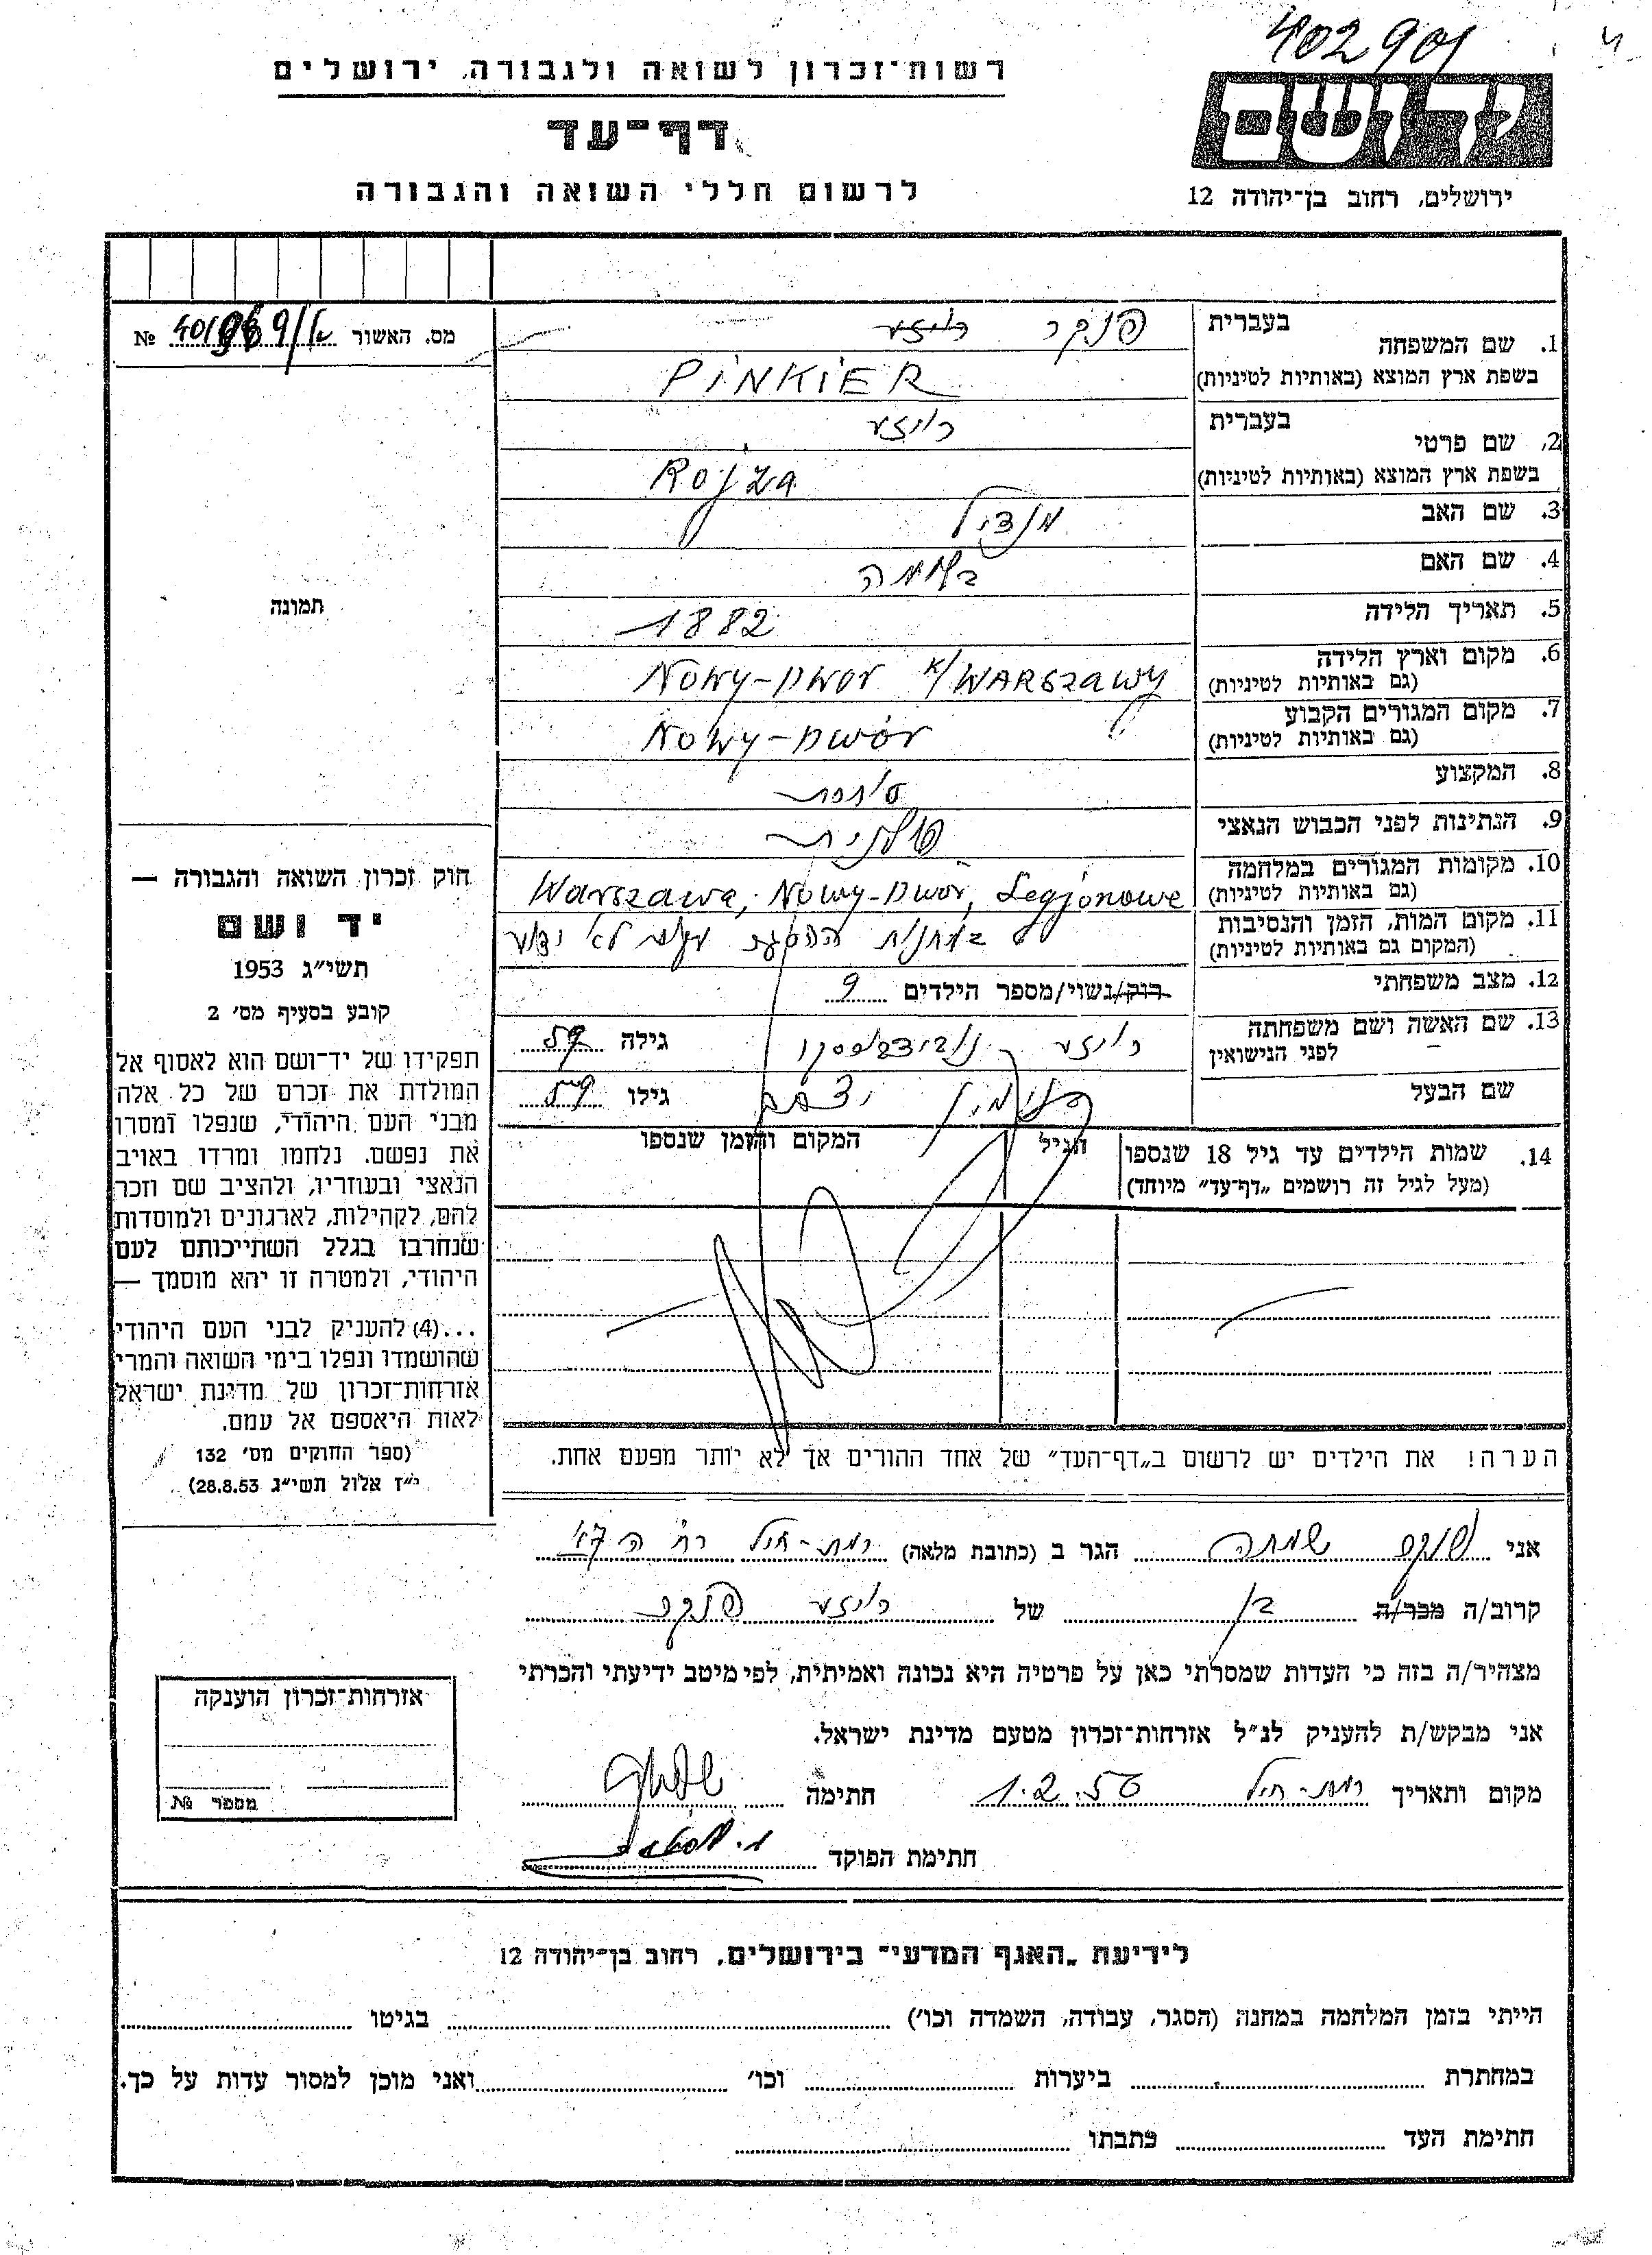 402901
רשות־זכרון לשואה ולגבורה, ירושלים
יד ושם
דף־עד
לרשום חללי השואה והגבורה
ירושלים, רחוב בן־יהודה 12
מס. האשור №
1. שם המשפחה
בעברית
פנקר רויזע
בשפת ארץ המוצא (באותיות לטיניות)
PINKIER
2. שם פרטי
בעברית
רויזע
בשפת ארץ המוצא (באותיות לטיניות)
Rojza
3. שם האב
מנדיל
4. שם האם
5. תאריך הלידה
1882
6. מקום וארץ הלידה
(גם באותיות לטיניות)
Nowy-Dwor k/WARSZAWY
7. מקום המגורים הקבוע
(גם באותיות לטיניות)
Nowy-Dwór
8. המקצוע
סוחרת
9. הנתינות לפני הכבוש הנאצי
פולנית
10. מקומות המגורים במלחמה
(גם באותיות לטיניות)
Warszawa, Nowy-Dwór, Legjonowe
11. מקום המות, הזמן והנסיבות
(המקום גם באותיות לטיניות)
לא ידוע
12. מצב משפחתי
רוק/נשוי/מספר הילדים 9
13. שם האשה ושם משפחתה
לפני הנישואין
רויזע
גילה 59
שם הבעל
גילו 59
14. שמות הילדים עד גיל 18 שנספו
(מעל לגיל זה רושמים „דף־עד" מיוחד)
הגיל
המקום והזמן שנספו
הערה! את הילדים יש לרשום ב„דף־העד" של אחד ההורים אך לא יותר מפעם אחת.
תמונה
חוק זכרון השואה והגבורה —
יד ושם
תשי״ג 1953
קובע בסעיף מס׳ 2
תפקידו של יד־ושם הוא לאסוף אל
המולדת את זכרם של כל אלה
מבני העם היהודי, שנפלו ומסרו
את נפשם. נלחמו ומרדו באויב
הנאצי ובעוזריו, ולהציב שם וזכר
להם, לקהילות, לארגונים ולמוסדות
שנחרבו בגלל השתייכותם לעם
היהודי, ולמטרה זו יהא מוסמך —
...(4) להעניק לבני העם היהודי
שהושמדו ונפלו בימי השואה והמרי
אזרחות־זכרון של מדינת ישראל
לאות היאספם אל עמם.
(ספר החוקים מס׳ 132
י״ז אלול תשי״ג 28.8.53)
אני פנקר שמחה הגר ב (כתובת מלאה)
קרוב/ה מכר/ה בן של רויזע פנקר
מצהיר/ה בזה כי העדות שמסרתי כאן על פרטיה היא נכונה ואמיתית, לפי מיטב ידיעתי והכרתי
אני מבקש/ת להעניק לנ״ל אזרחות־זכרון מטעם מדינת ישראל.
מקום ותאריך 1.2.56 חתימה
חתימת הפוקד
אזרחות־זכרון הוענקה
מספר №
לידיעת „האגף המדעי״ בירושלים, רחוב בן־יהודה 12
הייתי בזמן המלחמה במחנה (הסגר, עבודה, השמדה וכו׳) בגיטו
במחתרת ביערות וכו׳ ואני מוכן למסור עדות על כך.
חתימת העד כתבתו